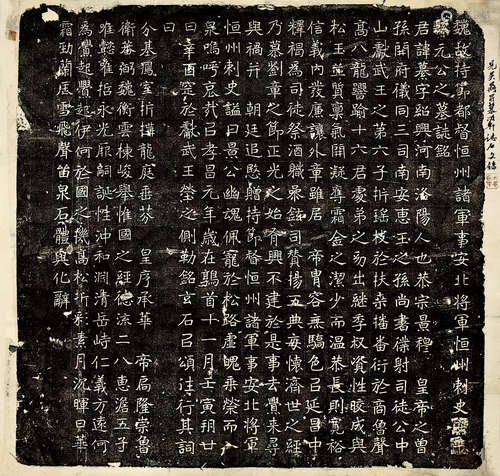 魏故持節都督恒州諸軍事安北將軍恒州刺史
縣元公之墓誌銘
君諱字紹興河南洛陽人也恭宗景穆 皇帝之曾
孫開府儀同三司南安惠王之孫尚書僕射司徒公中
山獻武王之第六子折瑤枝於扶桑播番衍於商魯聲
高八龍譽踰十六君處弟之幼出継季叔資性成與
松玉並質稟氣閑疑金之潔少而溫恭長則寬裕
信義內發廉讓外章雖居 帝冑容無驕色㠯延昌中
釋褐為司徒祭酒職秉鉉司贊揚五典每懷濟世之経
乃慕劉章之節正光之始有興不建於是事去釁來尋
與禍并 朝廷追愍贈持節都督恒州諸軍事安北將軍
恒州刺史謚曰景公幽魂佩寵於松路虛魄乘榮而入
泉嗚呼哀哉㠯孝昌元年歲在鶉首十一月壬寅玥廿
日辛酉窆於獻武王塋之側勒銘玄石㠯頌往行其詞
曰
分基鳳室折摽龍庭垂芬 皇序承華 帝扃隆崇魯
衛蕃弼魏衡雲棟峻舉惟國之經德流二八惠澹五子
雖雍梧永光厥嗣誕性沖和淵清岳峙仁義方遂何
為釁起釁起伊何於國之機高松折彩素月沉暉日華
霜勁蘭雪飛聲笛泉石體與化辭